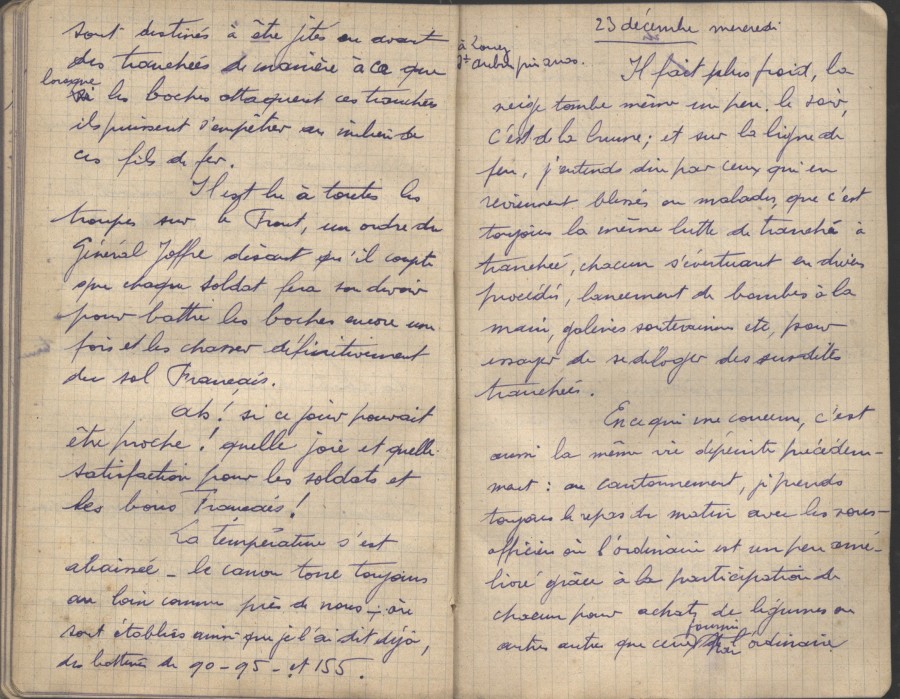 sont destinés à être jetés en avant
des tranchées de manière à ce que
lorsque les boches attaquent ces tranchées
ils puissent s'empêtrer au milieu de
ces fils de fer.
Il est lu à toutes les
troupes sur le Front, un ordre du
Général Joffre disant qu'il compte
que chaque soldat fera son devoir
pour battre les boches encore une
fois et les chasser définitivement
du sol Français.
Ah! si ce jour pouvait
être proche! quelle joie et quelle
satisfaction pour les soldats et
les bons Français!
La température s'est
abaissée - le canon tonne toujours
au loin comme près de nous - où
sont établies ainsi que je l'ai dit déjà,
des batteries de 90 - 95 - et 155.
23 décembre mercredi
à
Il fait plus froid, la
neige tombe même un peu. le soir,
c'est de la brume; et sur la ligne de
feu, j'entends dire par ceux qui en
reviennent blessés ou malades, que c'est
toujours la même lutte de tranchée à
tranchée, chacun s'évertuant en divers
procédés, lancement de bombes à la
main, galeries souterraines etc, pour
essayer de se déloger des susdites
tranchées.
En ce qui me concerne, c'est
aussi la même vie dépeinte précédem-
ment: au cantonnement, je prends
toujours le repas du matin avec les sous-
officiers où l'ordinaire est un peu amé-
lioré grâce à la participation de
chacun pour achats de légumes ou
autres que ceux fournis par l'ordinaire